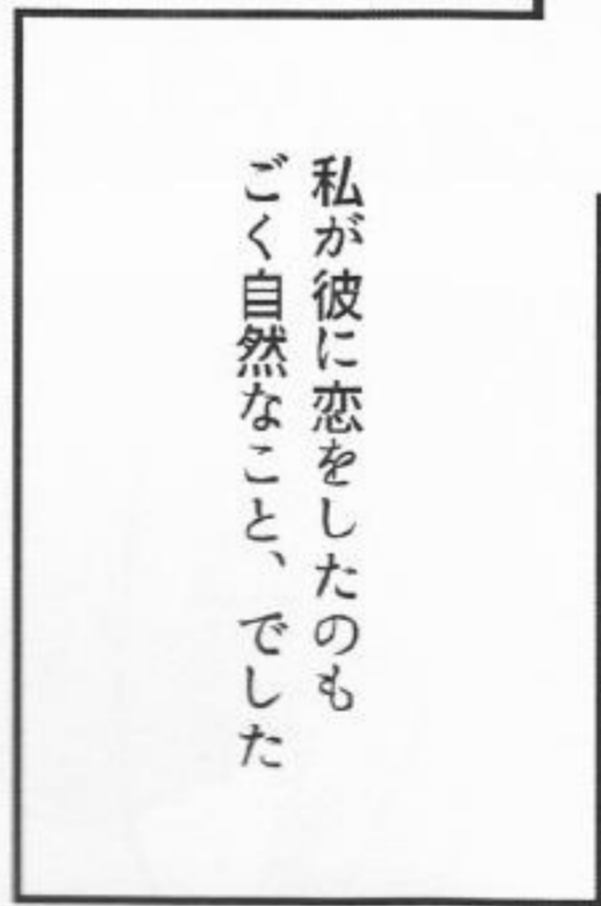 私が彼に恋をしたのも
ごく自然なこと、でした